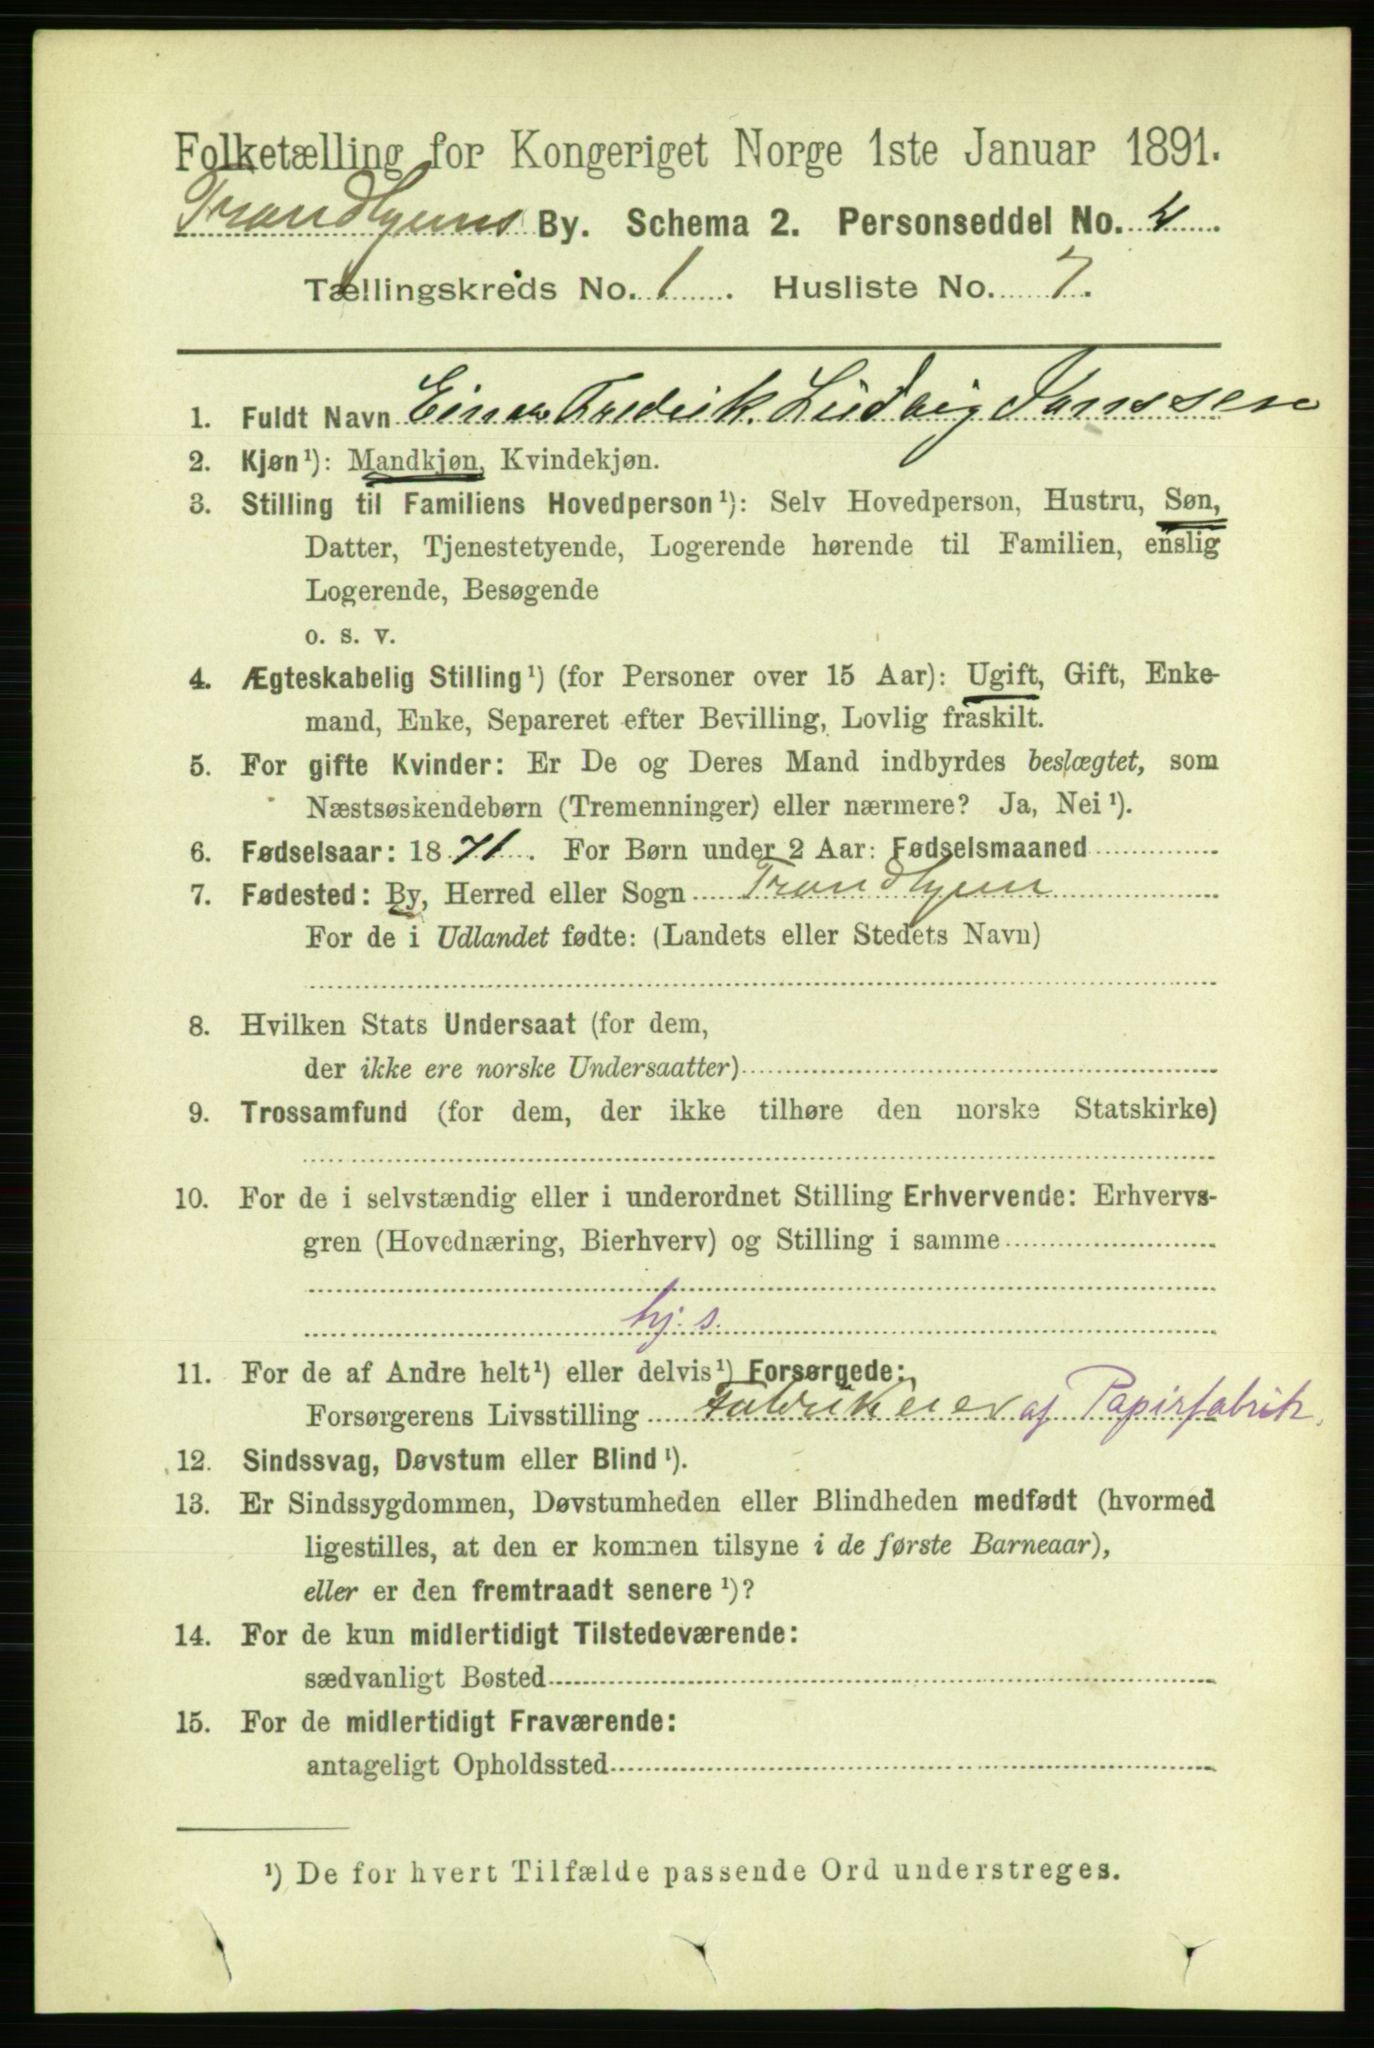 Folketælling for Kongeriget Norge 1ste Januar 1891.
Trondhjems By. Schema 2. Personseddel No. 4.
Tællingskreds No. 1. Husliste No. 7.
1. Fuldt Navn Einar Fredrik Ludvig Janssen
2. Kjøn¹): Mandkjøn, Kvindekjøn.
3. Stilling til Familiens Hovedperson¹): Selv Hovedperson, Hustru, Søn,
Datter, Tjenestetyende, Logerende hørende til Familien, enslig
Logerende, Besøgende
o. s. v.
4. Ægteskabelig Stilling¹) (for Personer over 15 Aar): Ugift, Gift, Enke-
mand, Enke, Separeret efter Bevilling, Lovlig fraskilt.
5. For gifte Kvinder: Er De og Deres Mand indbyrdes beslægtet, som
Næstsøskendebørn (Tremenninger) eller nærmere? Ja, Nei¹).
6. Fødselsaar: 1871. For Børn under 2 Aar: Fødselsmaaned
7. Fødested: By, Herred eller Sogn Trondhjem
For de i Udlandet fødte: (Landets eller Stedets Navn)
8. Hvilken Stats Undersaat (for dem,
der ikke ere norske Undersaatter)
9. Trossamfund (for dem, der ikke tilhøre den norske Statskirke)
10. For de i selvstændig eller i underordnet Stilling Erhvervende: Erhvervs-
gren (Hovednæring, Bierhverv) og Stilling i samme
hj. s.
11. For de af Andre helt¹) eller delvis¹) Forsørgede:
Forsørgerens Livsstilling Fabrikeier af Papirfabrik.
12. Sindssvag, Døvstum eller Blind¹).
13. Er Sindssygdommen, Døvstumheden eller Blindheden medfødt (hvormed
ligestilles, at den er kommen tilsyne i de første Barneaar),
eller er den fremtraadt senere¹)?
14. For de kun midlertidigt Tilstedeværende:
sædvanligt Bosted
15. For de midlertidigt Fraværende:
antageligt Opholdssted
¹) De for hvert Tilfælde passende Ord understreges.